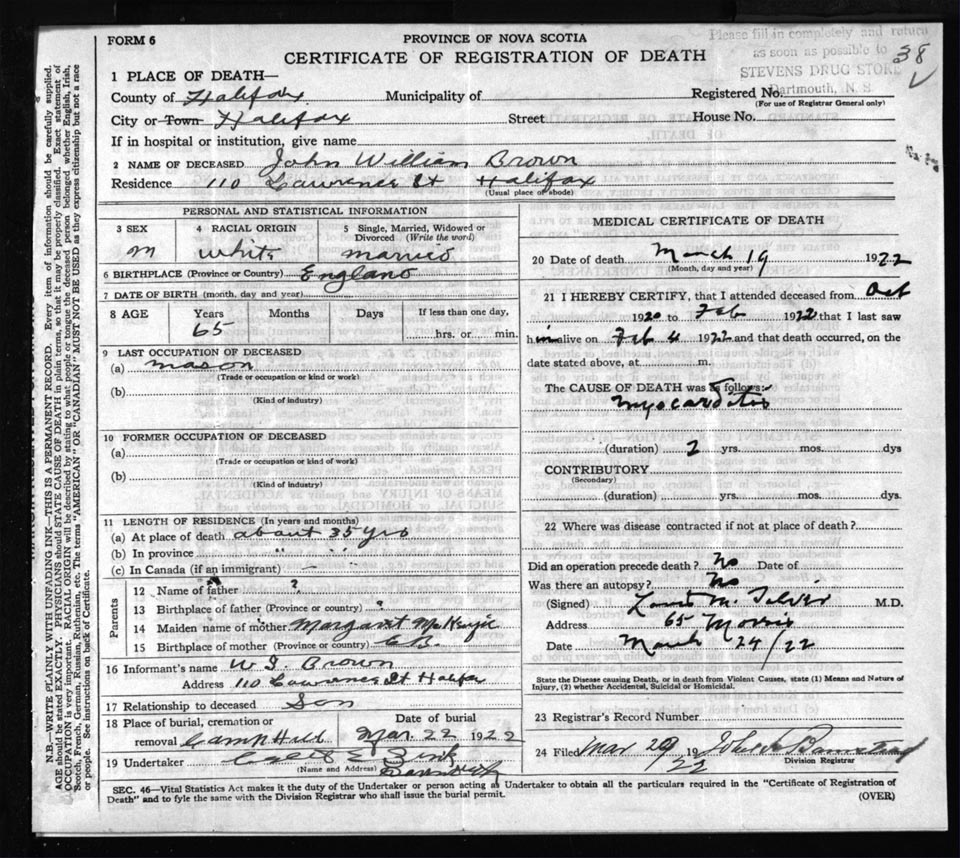 FORM 6
PROVINCE OF NOVA SCOTIA
CERTIFICATE OF REGISTRATION OF DEATH
Please fill in completely and return
as soon as possible to
STEVENS DRUG STORE
Dartmouth, N. S.
38
1 PLACE OF DEATH—
County of Halifax Municipality of Registered No.
(For use of Registrar General only)
City or Town Halifax Street House No.
If in hospital or institution, give name
2 NAME OF DECEASED John William Brown
Residence 110 Lawrence St Halifax
(Usual place of abode)
PERSONAL AND STATISTICAL INFORMATION
3 SEX 4 RACIAL ORIGIN 5 Single, Married, Widowed or
Divorced (Write the word)
M white married
6 BIRTHPLACE (Province or Country) England
7 DATE OF BIRTH (month, day and year)
8 AGE Years Months Days If less than one day,
65 hrs. or min.
9 LAST OCCUPATION OF DECEASED
(a) mason
(Trade or occupation or kind or work)
(b)
(Kind of industry)
10 FORMER OCCUPATION OF DECEASED
(a)
(Trade or occupation or kind of work)
(b)
(Kind of industry)
11 LENGTH OF RESIDENCE (In years and months)
(a) At place of death about 35 yrs
(b) In province " "
(c) In Canada (if an immigrant) —
Parents
12 Name of father ?
13 Birthplace of father (Province or country) ?
14 Maiden name of mother Margaret McKenzie
15 Birthplace of mother (Province or country)
16 Informant's name Brown
Address 110 Lawrence St Halifax
17 Relationship to deceased Son
18 Place of burial, cremation or Date of burial
removal Camp Hill Mar. 22 1922
19 Undertaker
(Name and Address)
MEDICAL CERTIFICATE OF DEATH
20 Date of death March 19 1922
(Month, day and year)
21 I HEREBY CERTIFY, that I attended deceased from Oct
1920 to Feb 1922 that I last saw
him alive on Feb 4 1922 and that death occurred, on the
date stated above, at m.
The CAUSE OF DEATH was as follows:
Myocarditis
(duration) 2 yrs. mos. dys
CONTRIBUTORY
(Secondary)
(duration) yrs. mos. dys.
22 Where was disease contracted if not at place of death?
Did an operation precede death? No Date of
Was there an autopsy? No
(Signed) M.D.
Address 65 Morris
Date March 24/22
State the Disease causing Death, or in death from Violent Causes, state (1) Means and Nature of
Injury, (2) whether Accidental, Suicidal or Homicidal.
23 Registrar's Record Number
24 Filed Mar 29 19 22
Division Registrar
SEC. 46—Vital Statistics Act makes it the duty of the Undertaker or person acting as Undertaker to obtain all the particulars required in the "Certificate of Registration of
Death" and to fyle the same with the Division Registrar who shall issue the burial permit.
(OVER)
N.B.—WRITE PLAINLY WITH UNFADING INK—THIS IS A PERMANENT RECORD. Every item of information should be carefully supplied.
AGE should be stated EXACTLY. PHYSICIANS should STATE CAUSE OF DEATH in plain terms, so that it may be properly classified. Exact statement of
OCCUPATION is very important. RACIAL ORIGIN will be described by stating to what people or tongue the deceased person belonged, whether English, Irish,
Scotch, French, German, Russian, Ruthenian, etc. The terms "AMERICAN" OR "CANADIAN" MUST NOT BE USED as they express citizenship but not a race
or people. See instructions on back of Certificate.